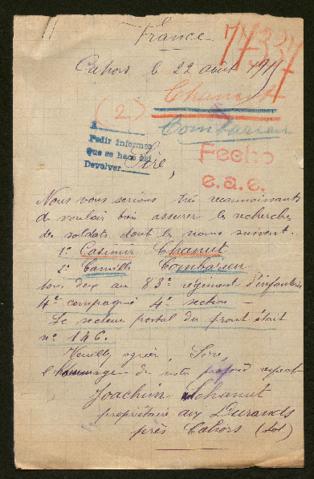 France
77337
Cahors le 22 août 1917
(2)
Chanut
Combarieu
Pedir informes
que se hace así
Devolver
Sire,
Fecho
e.a.c.
Nous vous serions très reconnaissants
de vouloir bien assurer les recherches
des soldats dont les noms suivent.
1º Casimir Chanut
2º Camille Combarieu
tous deux au 83e régiment d'infanterie
4e compagnie 4e section -
Le secteur postal du front était
nº 146.
Veuillez agréer, Sire,
l'hommage de notre profond respect
Joachim Chanut
propriétaire aux Durands
près Cahors (Lot)